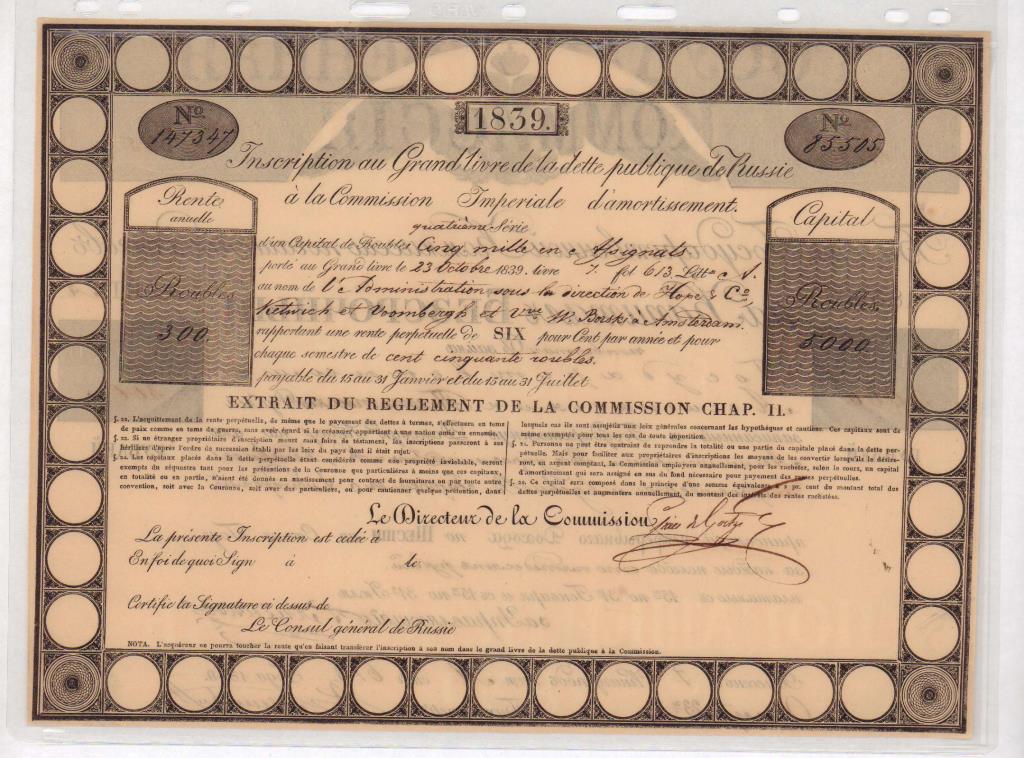 1839.
No 147347
No 85.505
Inscription au Grand livre de la dette publique de Russie
à la Commission Imperiale d'amortissement.
quatrième Série
Rente
annuelle
Roubles
300
Capital
Roubles
5000
d'un Capital de Roubles Cinq mille en Assignats
porté au Grand livre le 23 Octobre 1839. livre 7. fol 613. Litt A.
au nom de l'Administration sous la direction de Hope & Co
Ketwich et Voombergh et Vve W. Borski à Amsterdam.
rapportant une rente perpétuelle de SIX pour Cent par année et pour
chaque semestre de cent cinquante roubles.
payable du 15 au 31 Janvier et du 15 au 31 Juillet
EXTRAIT DU REGLEMENT DE LA COMMISSION CHAP. II.
L'acquittement de la rente perpétuelle, de même que le payement des dettes à termes, s'effectuera en tems
de paix comme en tems de guerre, sans avoir égard si le créancier appartient à une nation amie ou ennemie.
Si un étranger propriétaire d'inscription meurt sans faire de testament, les inscriptions passeront à ses
héritiers d'après l'ordre de succession établi par les loix du pays dont il était sujet.
Les capitaux placés dans la dette perpétuelle étant considérés comme une propriété inviolable, seront
exempts du séquestre tant pour les prétentions de la Couronne que particulières à moins que ces capitaux,
en totalité ou en partie, n'aient été donnés en nantissement pour contract de fournitures ou par toute autre
convention, soit avec la Couronne, soit avec des particuliers, ou pour cautionner quelque prétention, dans
lesquels cas ils sont assujétis aux loix générales concernant les hypothèques et cautions. Ces capitaux sont de
même exemptés pour tous les cas de toute imposition.
Personne ne peut être contraint de reprendre la totalité ou une partie du capital placé dans la dette per-
pétuelle. Mais pour faciliter aux propriétaires d'inscriptions les moyens de les convertir lorsqu'ils le désire-
ront, en argent comptant, la Commission employera annuellement, pour les racheter, selon le cours, un capital
d'amortissement qui sera assigné en sus du fond nécessaire pour payement des rentes perpétuelles.
Ce capital sera composé dans le principe d'une somme équivalente à pr. cent du montant total des
dettes perpétuelles et augmentera annuellement, du montant des interêts des rentes rachetées.
Le Directeur de la Commission
La présente Inscription est cédée à
En foi de quoi Sign à le
Certifie la Signature ci dessus de
Le Consul général de Russie
NOTA. L'acquéreur ne pourra toucher la rente qu'en faisant transférer l'inscription à son nom dans le grand livre de la dette publique à la Commission.